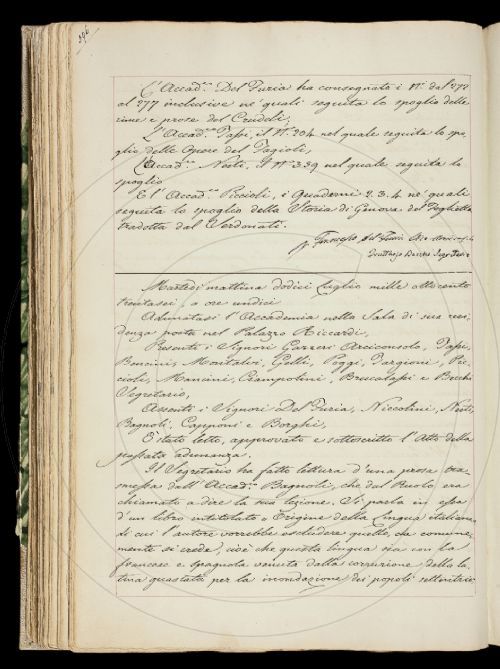 296
L'Accad.co Del Furia ha consegnato i N.i dal 272
al 277 inclusive ne' quali seguita lo spoglio delle
rime e prose del Crudeli;
L'Accad.co Papi, il N.o 204 nel quale seguita lo spo,
glio delle Opere del Fagioli,
L'Accad.co Nesti, il N.o 339 nel quale seguita lo
spoglio
E l'Accad.co Piccioli, i Quaderni 2. 3. 4. ne' quali
seguita lo spoglio della Storia di Genova del Foglietta
tradotta dal Serdonati.
Francesco del Furia
Martedi mattina dodici Luglio mille ottocento
trentasei, a ore undici
Adunatasi l'Accademia nella Sala di sua resi,
denza posta nel Palazzo Riccardi,
Presenti i Signori Gazzeri Arciconsolo, Papi,
Bencini, Montalvi, Gelli, Poggi, Targioni, Pic,
cioli, Mancini, Ciampolini, Brucalassi e Becchi
Segretario,
Assenti i Signori Del Furia, Niccolini, Nesti,
Bagnoli, Capponi e Borghi,
È stato letto, approvato e sottoscritto l'Atto della
passata adunanza.
Il Segretario ha fatto lettura d'una prosa tra,
smessa dall'Accad.co Bagnoli, che dal Ruolo era
chiamato a dire la sua lezione. Si parla in essa
d'un libro intitolato = Origine della lingua italiana,
di cui l'autore vorrebbe escludere quello, che comune,
mente si crede, cioè che questa lingua sia con la
francese e spagnola venuta dalla corruzione della la,
tina guastata per la inondazione dei popoli settentrio